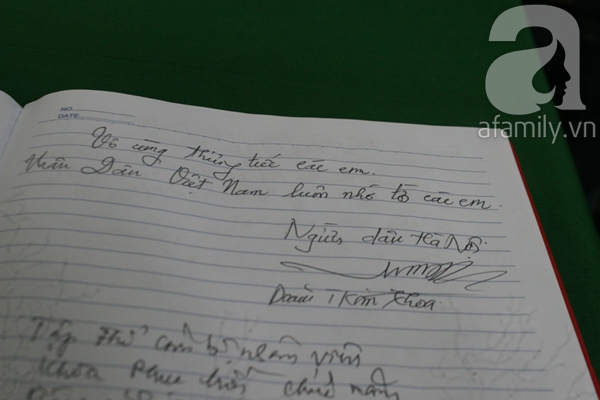 a
afamily.vn
NO.
DATE.
Vô cùng thương tiếc các em.
Nhân Dân Việt Nam luôn nhớ tới các em.
Người dân Hà Nội
Kim Khoa
Tập thể cán bộ nhân viên
Khoa Phục hồi chức năng